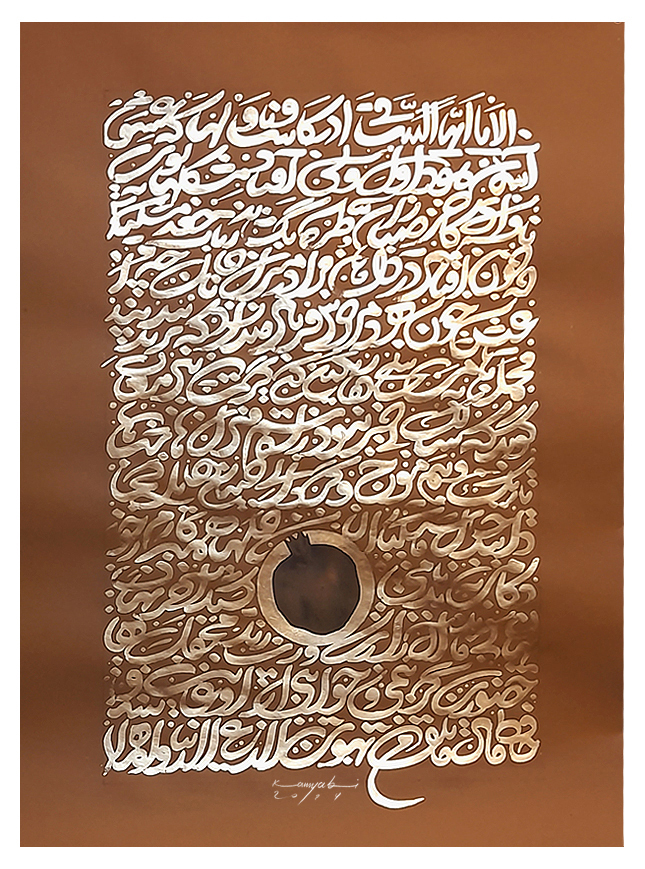 الا یا ایها الساقی ادر کاسا و ناولها که عشق
آسان نمود اول ولی افتاد مشکلها ببوی
نافه کاخر صبا زان طره بگشاید ز تاب جعد مشکینش
چه خون افتاد در دلها مرا در منزل جانان چه امن
عیش چون هر دم جرس فریاد میدارد که بربندید
محملها به می سجاده رنگین کن گرت پیر مغان
گوید که سالک بی خبر نبود ز راه و رسم منزلها شب
تاریک و بیم موج و گردابی چنین هایل کجا
دانند حال ما سبکباران ساحلها همه کارم ز خود
کامی به بدنامی کشید آخر نهان
کی ماند آن رازی کزو سازند محفلها
حضوری گر همی خواهی ازو غایب مشو
حافظ متی ما تلق من تهوی دع الدنیا و اهملها
Kamyabi